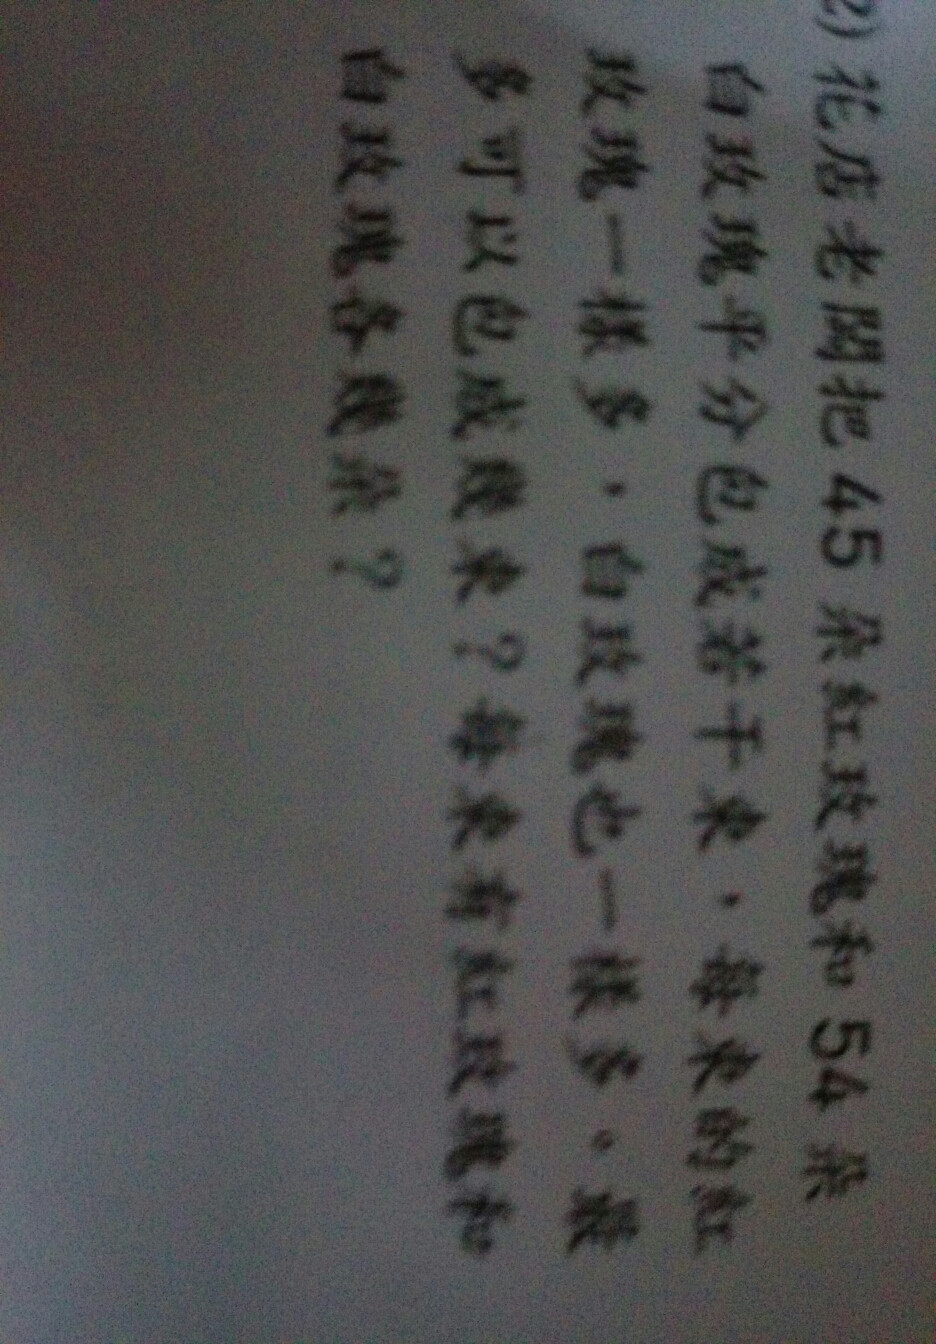 2) 花店老闆把 45 朵紅玫瑰和 54 朵
白玫瑰平分包成若干束，每束的紅
玫瑰一樣多，白玫瑰也一樣多。最
多可以包成幾束？每束有紅玫瑰和
白玫瑰各幾朵？